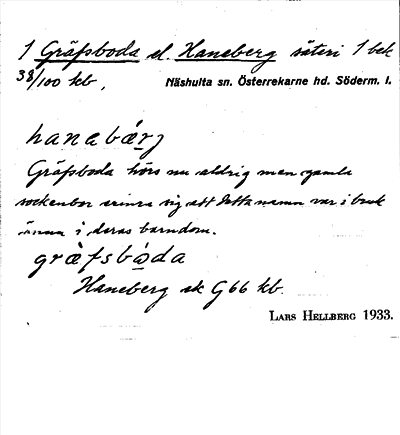 1 Gräfsboda el. Haneberg säteri 1 bek
38/100 kb,
Näshulta sn. Österrekarne hd. Söderm. l.
hanebærj
Gräfsboda höres nu aldrig men gamla
sockenbor erinra sig att detta namn var i bruk
ännu i deras barndom.
græ̀fsbóda
Haneberg ek G66 kb.
LARS HELLBERG 1933.